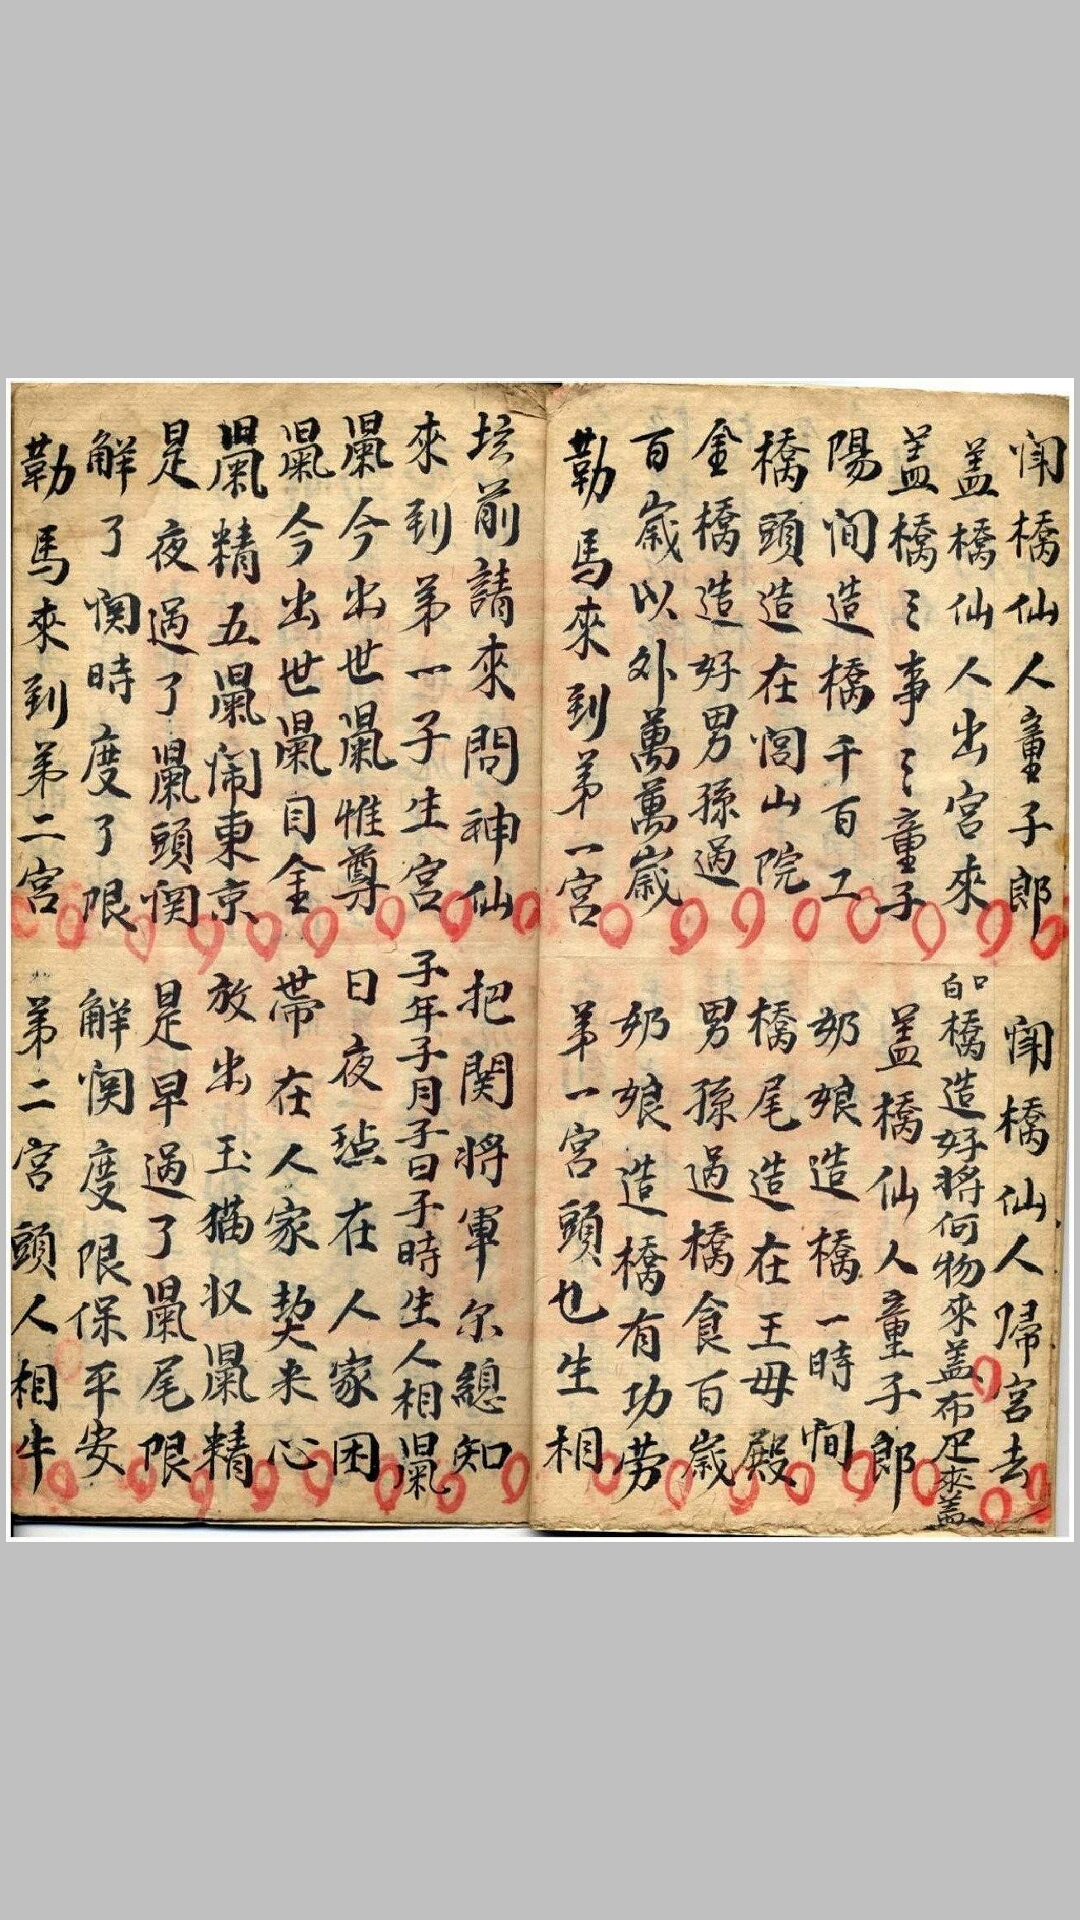 開橋仙人童子郎 開橋仙人歸宮去
盖橋仙人出宮來 白口橋造好將何物來盖布疋來盖
盖橋〻事〻童子 盖橋仙人童子郎
陽間造橋千百工 奶娘造橋一時間
橋頭造在閭山院 橋尾造在王母殿
金橋造好男孫過 男孫過橋食百歲
百歲以外萬萬歲 奶娘造橋有功劳
勒馬來到第一宮 第一宮頭也生相
坛前請來問神仙 把関將軍尔總知
來到第一子生宮 子年子月子日子時生人相鼠
鼠今出世鼠惟尊 日夜在人家困
鼠今出世鼠目金 帶在人家契来心
鼠精五鼠闹東京 放出玉猫收鼠精
是夜過了鼠頭関 是早過了鼠尾限
解了関時度了限 解関度限保平安
勒馬來到第二宮 第二宮頭人相牛